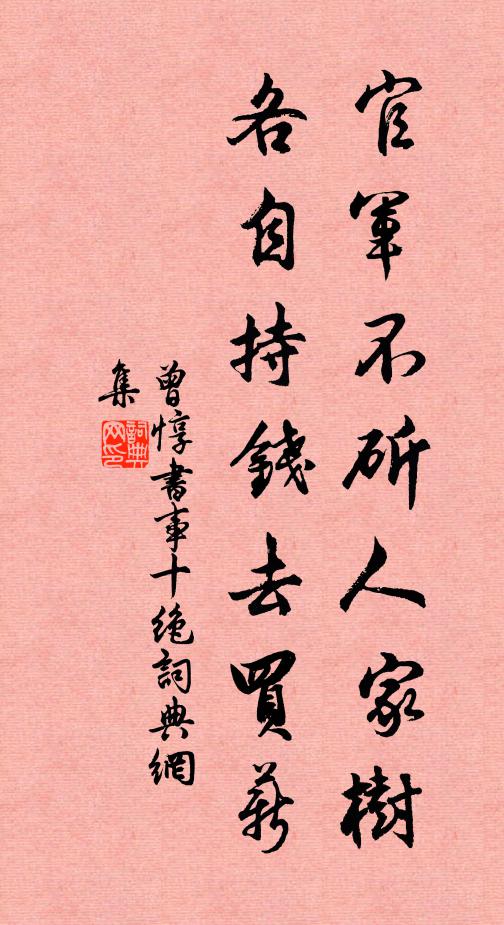 官軍不斫人家樹
各自持錢去買薪
曾惇書事十絶詞典網
集
詞典網印